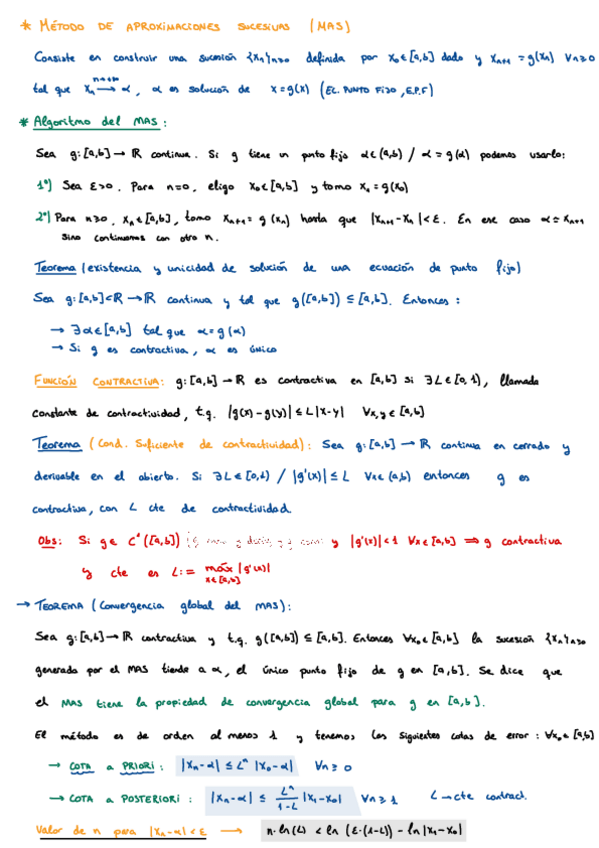 * MÉTODO DE APROXIMACIONES SUCESIVAS (MAS)
Consiste en construir una sucesión {xn}n≥0 definida por x0∈[a,b] dado y xn+1 = g(xn) ∀n≥0
tal que xn —n→+∞→ α, α es solución de x=g(x) (EC. PUNTO FIJO, E.P.F)
* Algoritmo del MAS:
Sea g:[a,b]→ℝ continua. Si g tiene un punto fijo α∈(a,b) / α = g(α) podemos usarlo:
1º) Sea ε>0. Para n=0, eligo x0∈[a,b] y tomo x1 = g(x0)
2º) Para n≥0, xn∈[a,b], tomo xn+1 = g(xn) hasta que |xn+1-xn|<ε. En ese caso α≃xn+1
sino continuamos con otro n.
Teorema (existencia y unicidad de solución de una ecuación de punto fijo)
Sea g:[a,b]⊂ℝ→ℝ continua y tal que g([a,b]) ⊆ [a,b]. Entonces:
→ ∃α∈[a,b] tal que α=g(α)
→ Si g es contractiva, α es único
FUNCIÓN CONTRACTIVA: g:[a,b]→ℝ es contractiva en [a,b] si ∃L∈[0,1), llamada
constante de contractividad, t.q. |g(x)-g(y)| ≤ L|x-y| ∀x,y∈[a,b]
Teorema (Cond. Suficiente de contractividad): Sea g:[a,b]→ℝ continua en cerrado y
derivable en el abierto. Si ∃L∈[0,1) / |g'(x)| ≤ L ∀x∈(a,b) entonces g es
contractiva, con L cte de contractividad.
Obs: Si g∈ C¹([a,b]) y |g'(x)|<1 ∀x∈[a,b] ⟹ g contractiva
y cte es L:= máx |g'(x)|
x∈[a,b]
→ TEOREMA (Convergencia global del MAS):
Sea g:[a,b]→ℝ contractiva y t.q. g([a,b]) ⊆ [a,b]. Entonces ∀x0∈[a,b] la sucesión {xn}n≥0
generada por el MAS tiende a α, el único punto fijo de g en [a,b]. Se dice que
el MAS tiene la propiedad de convergencia global para g en [a,b].
El método es de orden al menos 1 y tenemos las siguientes cotas de error: ∀x0∈[a,b]
→ COTA a PRIORI: |xn-α| ≤ Lⁿ |x0-α| ∀n≥0
→ COTA a POSTERIORI: |xn-α| ≤ Lⁿ/(1-L) |x1-x0| ∀n≥1 L→cte contract.
Valor de n para |xn-α|<ε → n·ln(L) < ln(ε·(1-L)) - ln|x1-x0|